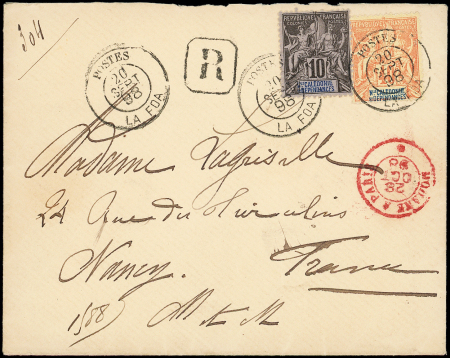 304
R
POSTES
20
SEPT
98
LA FOA
POSTES
20
SEPT
98
LA FOA
POSTES
20
SEPT
98
LA FOA
RÉPUBLIQUE FRANÇAISE
COLONIES
10
Nlle CALÉDONIE
ET DÉPENDANCES
Nlle CALÉDONIE
ET DÉPENDANCES
Madame Lagrisolle
24 Rue du
Nancy. France
M et M
28
OCT
98
PARIS